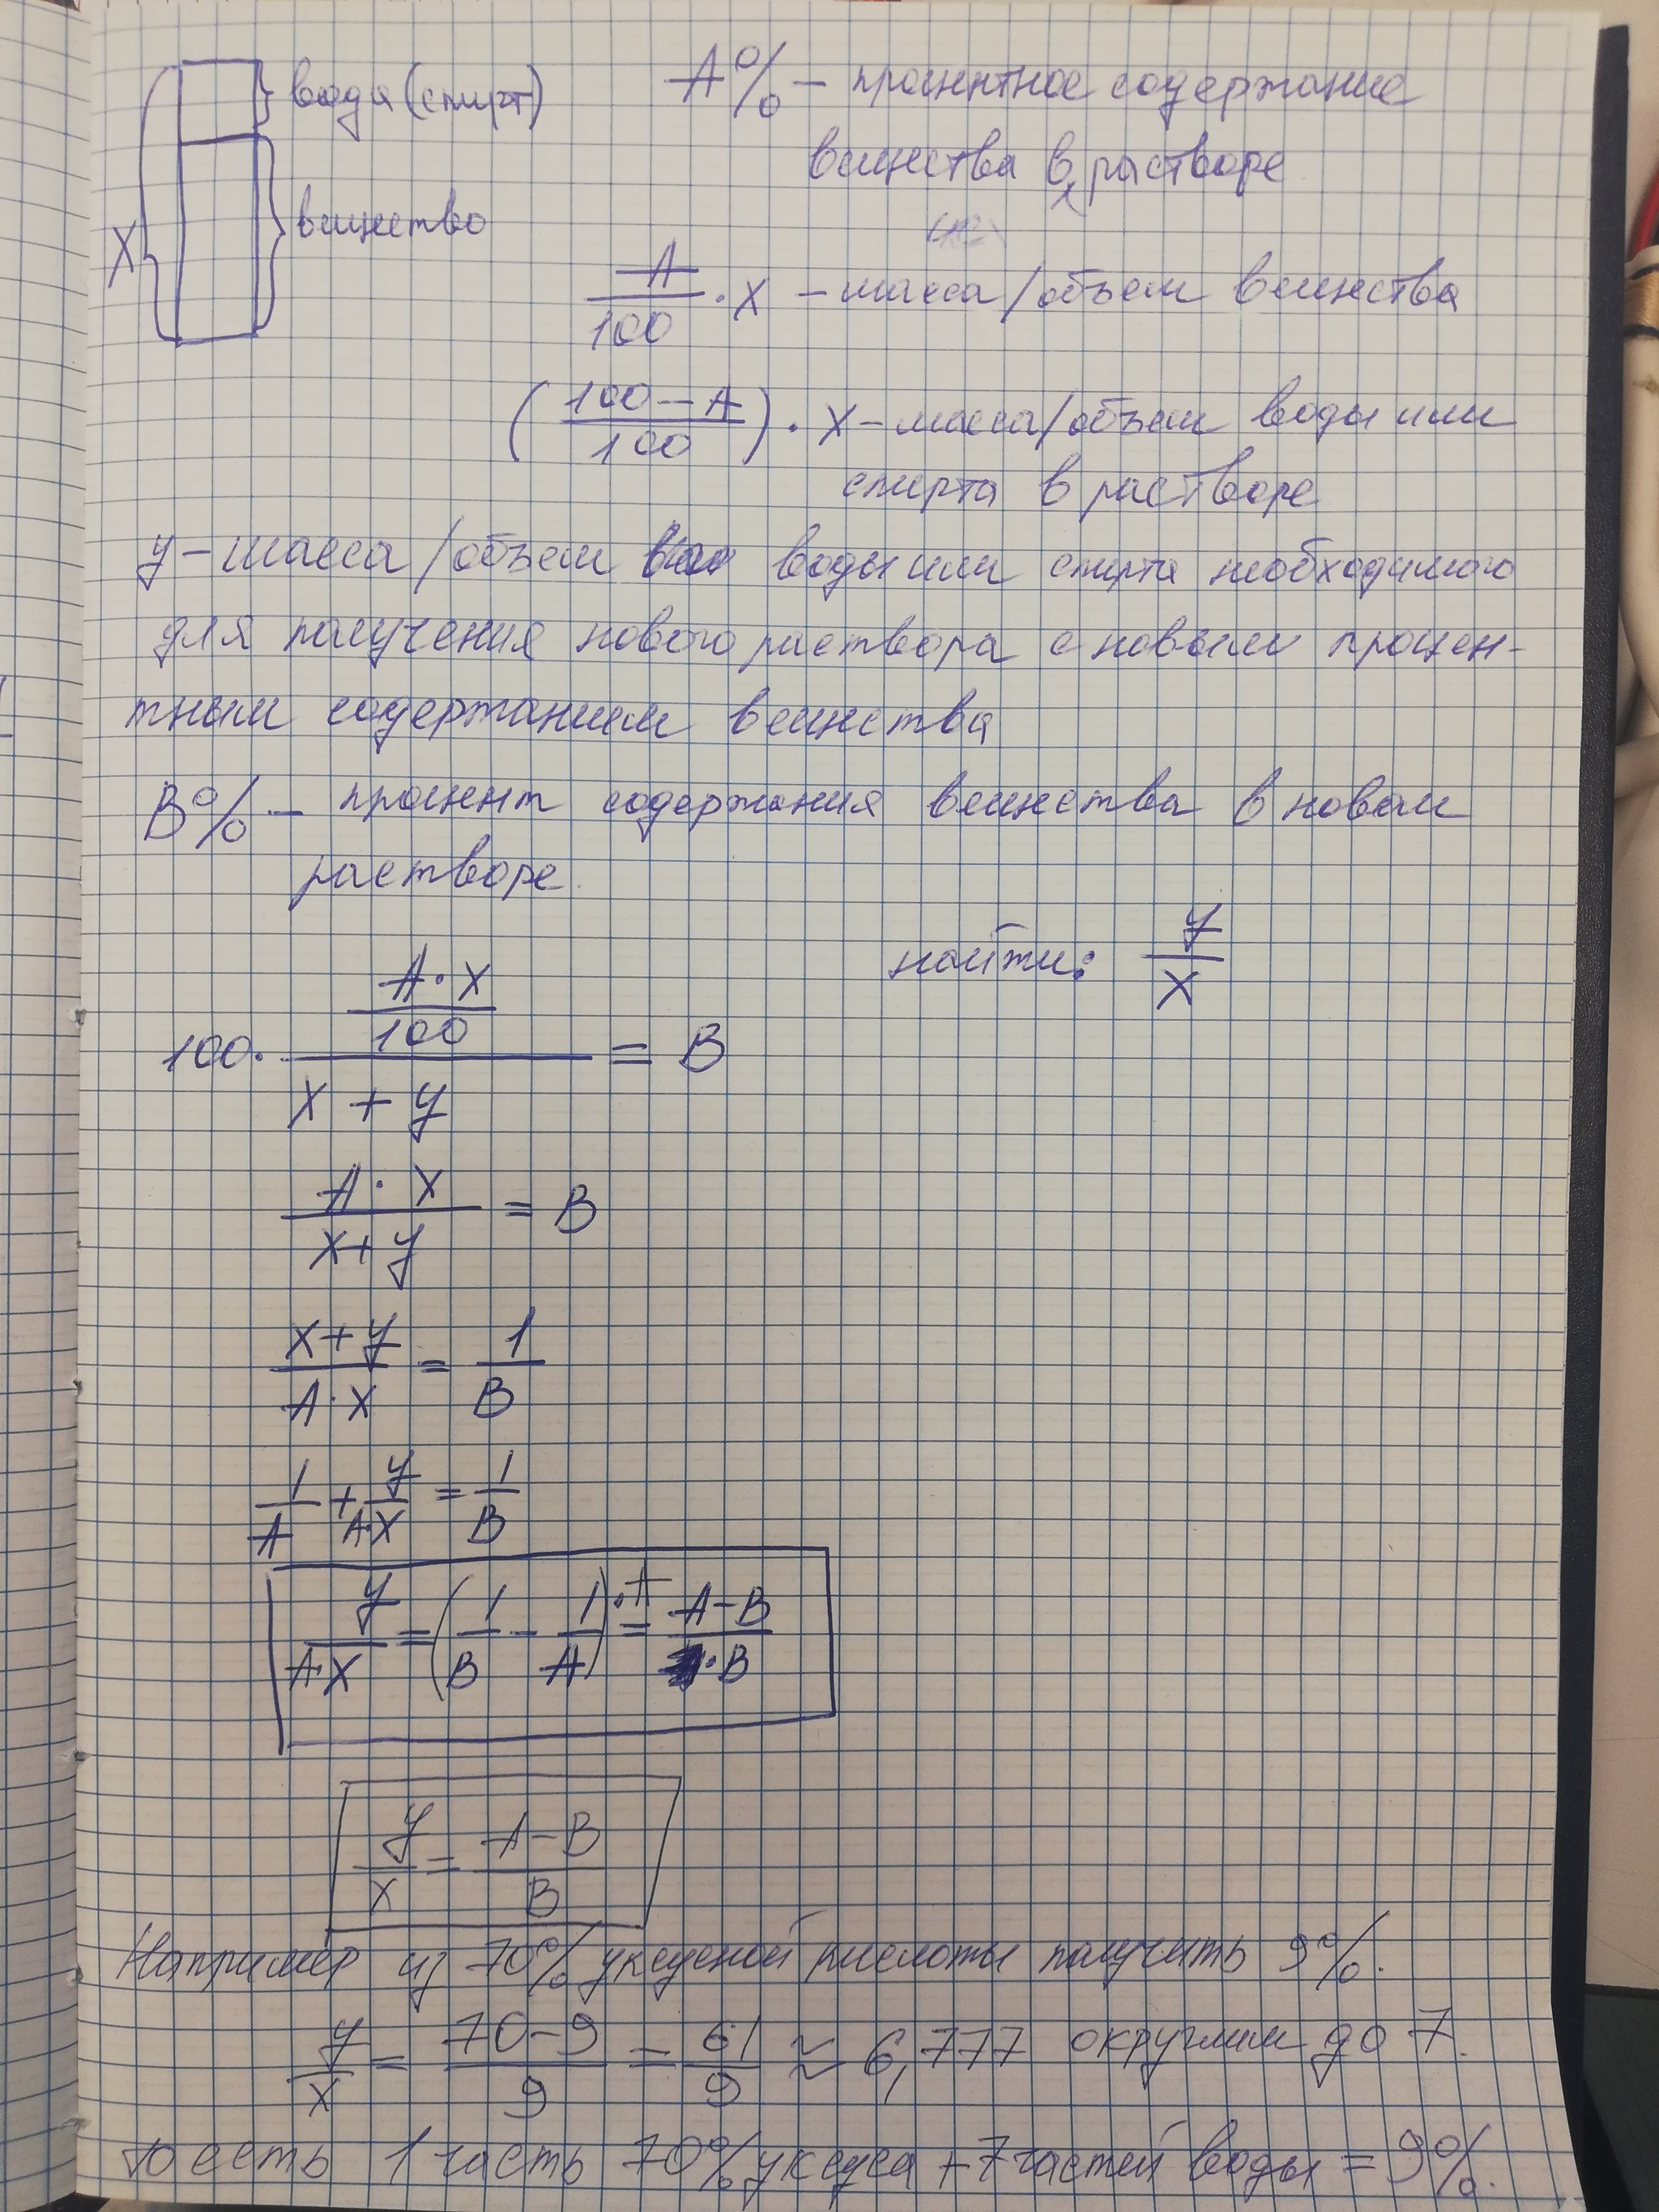 вода (спирт)
A% – процентное содержание
вещества в растворе
x
X
вещество
A/100 · X – масса/объем вещества
((100 – A)/100) · X – масса/объем воды или
спирта в растворе
y – масса/объем воды или спирта необходимого
для получения нового раствора с новым процен-
тным содержанием вещества
B% – процент содержания вещества в новом
растворе.
найти: y/X
100 · (A · X/100)/(X + y) = B
(A · X)/(X + y) = B
(X + y)/(A · X) = 1/B
1/A + y/(A·X) = 1/B
y/(A·X) = (1/B – 1/A) · A = (A – B)/( · B)
y/X = (A – B)/B
Например из 70% уксусной кислоты получить 9%.
y/X = (70 – 9)/9 = 61/9 ≈ 6,777 округлим до 7.
то есть 1 часть 70% уксуса + 7 частей воды = 9%.